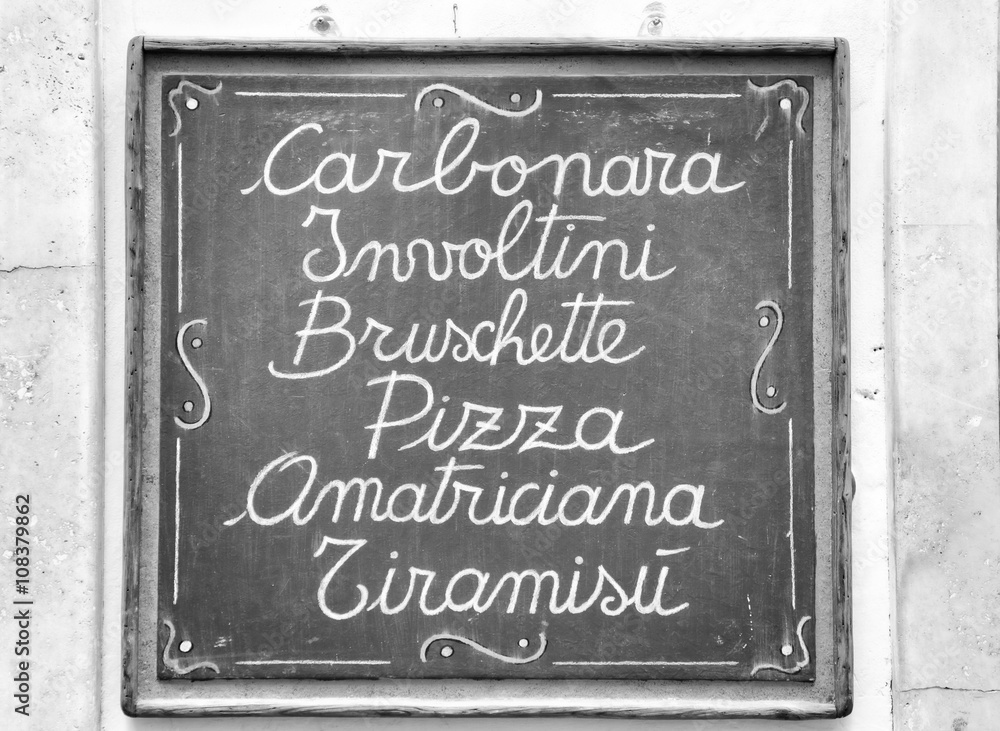 Carbonara
Involtini
Bruschette
Pizza
Amatriciana
Tiramisū
Adobe Stock | #108379862